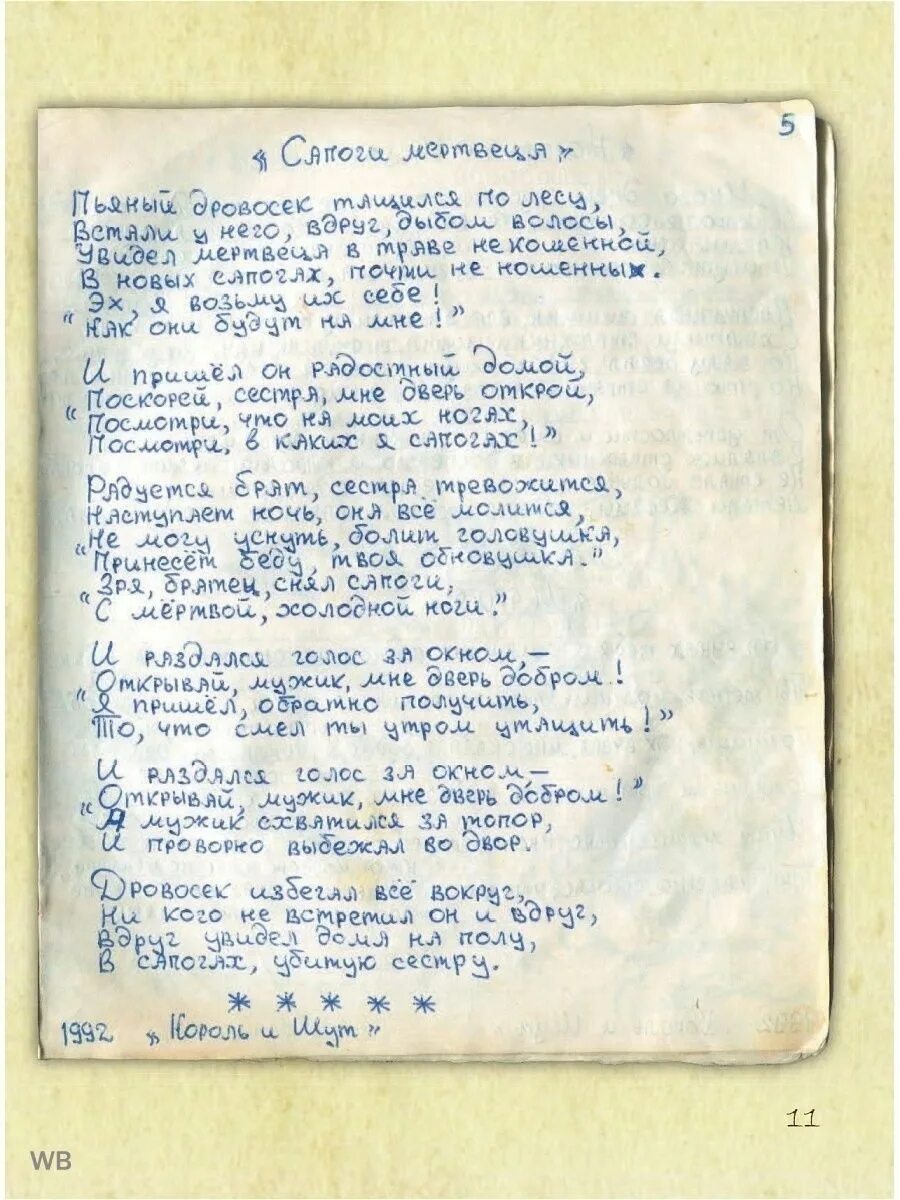 5
„Сапоги мертвеца"
Пьяный дровосек тащился по лесу,
Встали у него, вдруг, дыбом волосы,
Увидел мертвеца в траве некошенной,
В новых сапогах, почти не ношенных.
Эх, я возьму их себе!
"Как они будут на мне!"
И пришёл он радостный домой,
Поскорей, сестра, мне дверь открой,
"Посмотри, что на моих ногах,
Посмотри, в каких я сапогах!"
Радуется брат, сестра тревожится,
Наступает ночь, она всё молится,
Не могу уснуть, болит головушка,
"Принесёт беду, твоя обновушка."
Зря, братец, снял сапоги,
"С мёртвой, холодной ноги."
И раздался голос за окном,—
"Открывай, мужик, мне дверь добром!
Я пришёл, обратно получить,
То, что смел ты утром утащить!"
И раздался голос за окном—
"Открывай, мужик, мне дверь добром!"
А мужик схватился за топор,
И проворно выбежал во двор.
Дровосек избегал всё вокруг,
Ни кого не встретил он и вдруг,
Вдруг увидел дома на полу,
В сапогах, убитую сестру.
* * * * *
1992 „Король и Шут"
11
WB